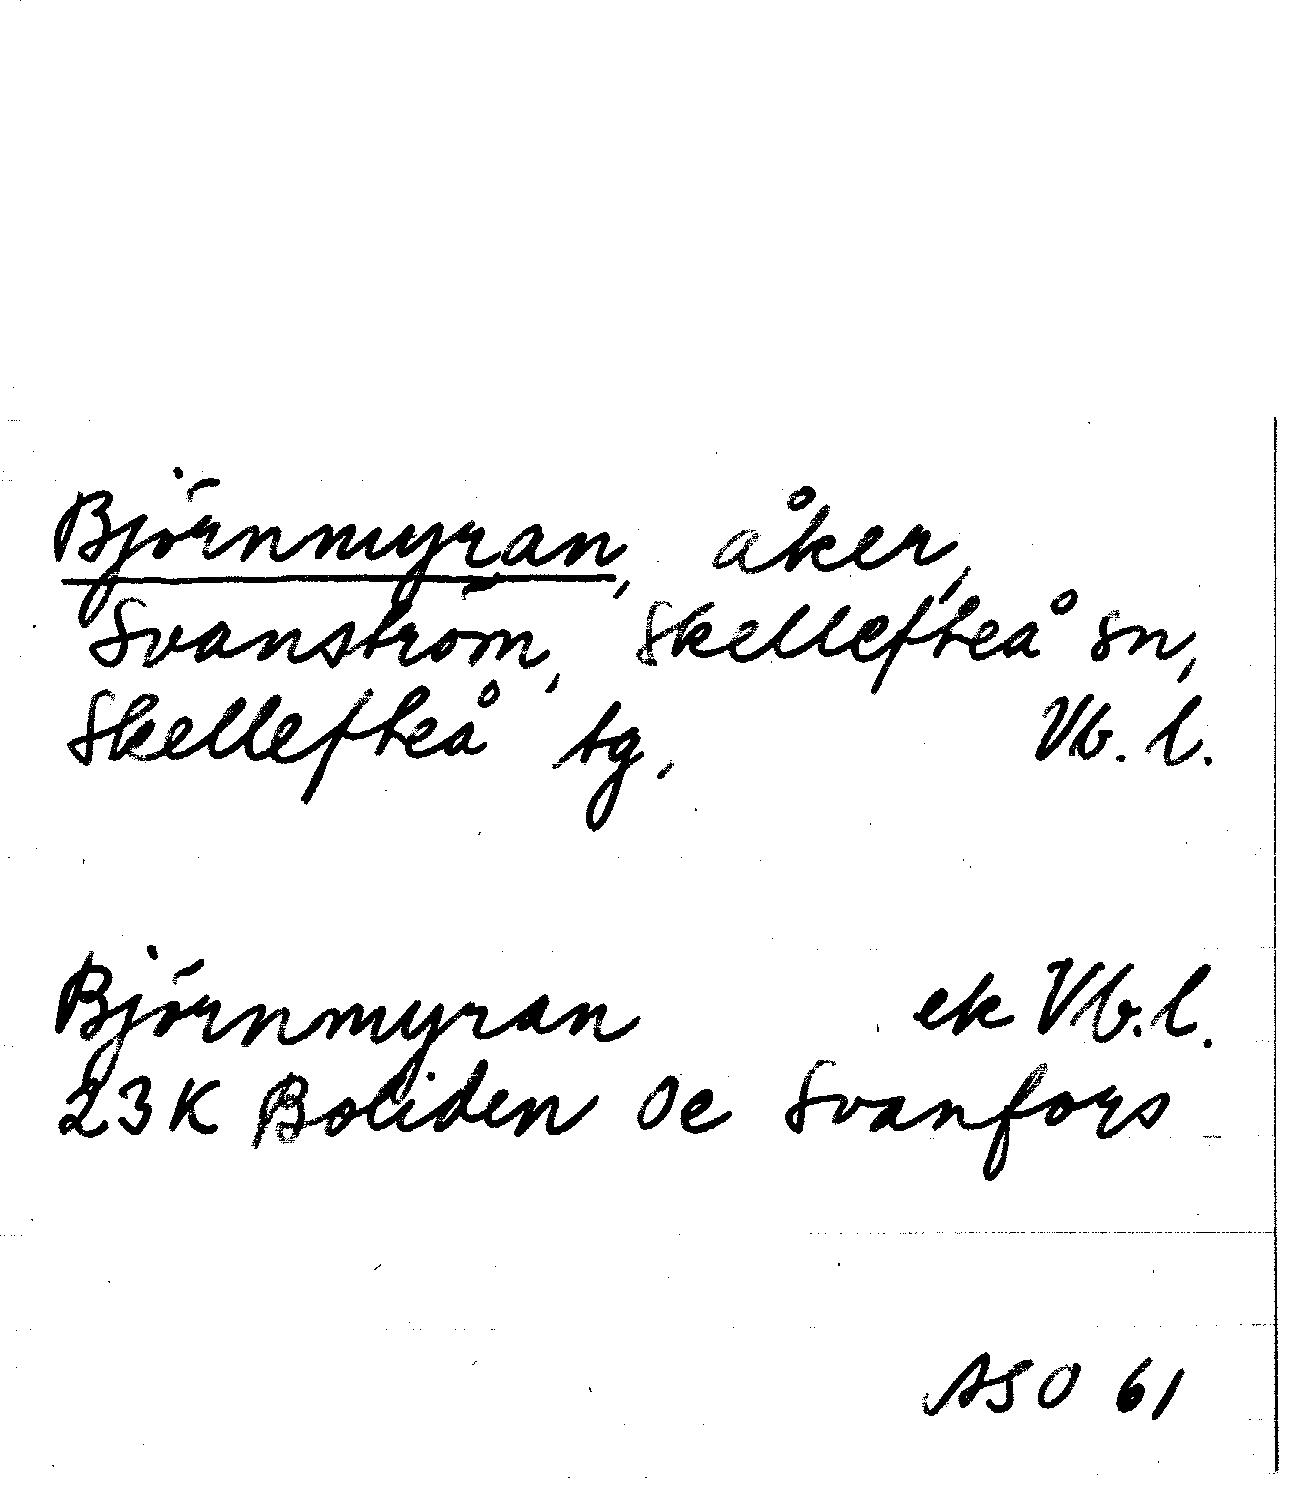 Björnmyran, åker,
Svanström, Skellefteå sn,
Skellefteå tg, Vb. l.
Björnmyran ek Vb. l.
23K Boliden 0e Svanfors
ASO 61